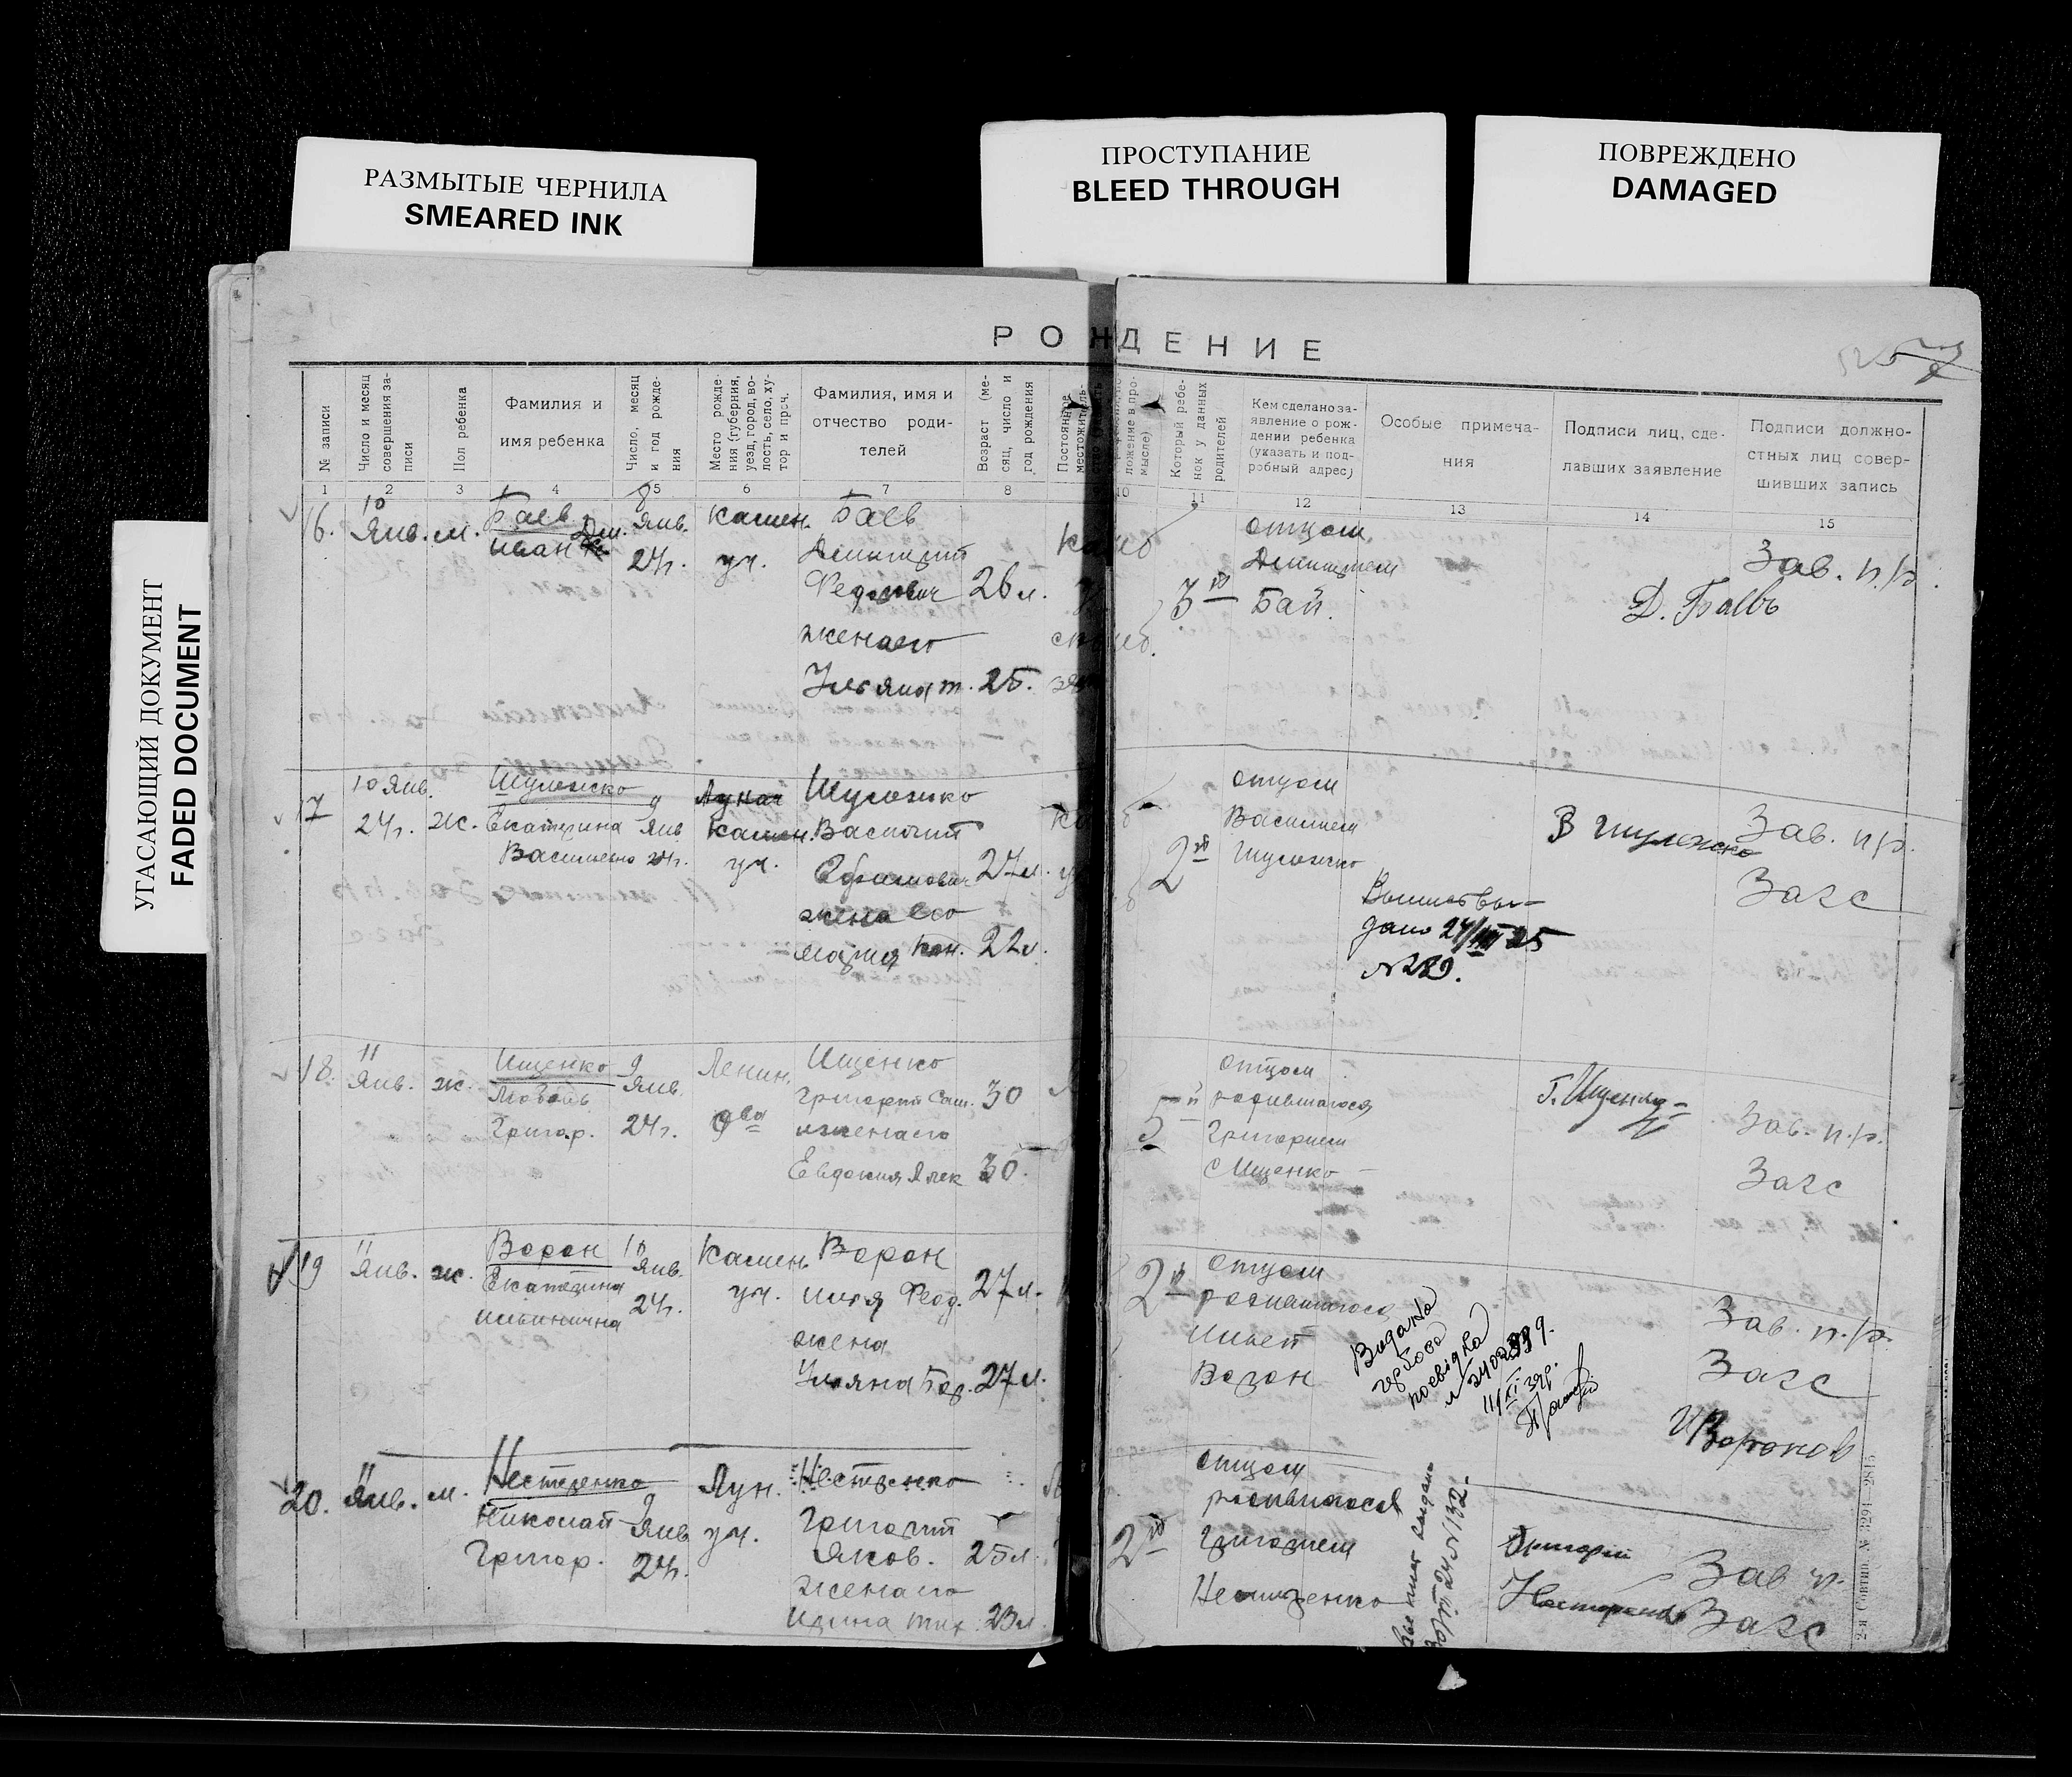 РАЗМЫТЫЕ ЧЕРНИЛА
SMEARED INK
ПРОСТУПАНИЕ
BLEED THROUGH
ПОВРЕЖДЕНО
DAMAGED
УГАСАЮЩИЙ ДОКУМЕНТ
FADED DOCUMENT
РОЖДЕНИЕ
№ записи
Число и месяц
совершения за-
писи
Пол ребенка
Фамилия и
имя ребенка
Число, месяц
и год рожде-
ния
Место рожде-
ния (губерния,
уезд, город, во-
лость, село, ху-
тор и проч.
Фамилия, имя и
отчество роди-
телей
Возраст (ме-
сяц, число и
год рождения
Постоянное
местожитель-
Который ребе-
нок у данных
родителей
Кем сделано за-
явление о рож-
дении ребенка
(указать и под-
робный адрес)
Особые примеча-
ния
Подписи лиц, сде-
лавших заявление
Подписи должно-
стных лиц совер-
шивших запись
1 2 3 4 5 6 7 8 10 11 12 13 14 15
16.
10
Янв.
м.
Баев
Иван Дм.
8
Янв.
24г.
Камен.
уч.
Баев
Дмитрий
Федович
26 л.
жена его
Ульяна т. 25.
3й
отцом
Дмитрием
Бай.
Д. Баевъ
Зав. п/р.
17
10 Янв.
24г.
ж.
Шуложко
Екатерина
Васильевна
9
Янв
24г.
Камен.
уч.
Шуложко
Василий
27л.
жена его
Мария 22л.
2й
отцом
Василием
Шуложко
дано 24/III 25
№289.
В Шуложко
Зав. п/р.
Загс
18.
11
Янв.
ж.
Ищенко
Любовь
Григор.
9
Янв.
24г.
Ленин.
Ищенко
Григорий Сам. 30
жена его
Евдокия Алек 30.
5й
отцом
родившагося
Григорием
С Ищенко
Г. Ищенко
Зав. п/р.
Загс
19
11
Янв.
ж.
Ворон
Екатерина
Ильинична
10
Янв.
24г.
Камен.
уч.
Ворон
Илья Феод. 27л.
жена
Ульяна 27л.
2й
отцом
родившагося
Ильей
Ворон
Видана
гербова
посвідка
11/XI 39р.
Зав. п/р.
Загс
И Воронов
20.
11
Янв.
м.
Нестеренко
Николай
Григор.
9
Янв
24г.
Лун.
уч.
Нестеренко
Григорий
Яков. 25л.
жена его
Ирина Тих. 23л.
2й
отцом
родившагося
Григорием
Нестеренко
Григорий
Нестеренко
Зав п.
Загс
2-я Совтип. № 3291—2815